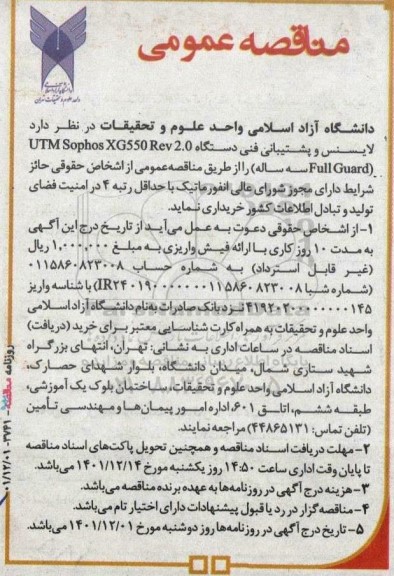 مناقصه عمومی
دانشگاه آزاد اسلامی واحد علوم و تحقیقات در نظر دارد
لایسنس و پشتیبانی فنی دستگاه UTM Sophos XG550 Rev 2.0
(Full Guard سه ساله) را از طریق مناقصه عمومی از اشخاص حقوقی حائز
شرایط دارای مجوز شورای عالی انفورماتیک با حداقل رتبه ۴ در امنیت فضای
تولید و تبادل اطلاعات کشور خریداری نماید.
۱- از اشخاص حقوقی دعوت به عمل می‌آید از تاریخ درج این آگهی
به مدت ۱۰ روز کاری با ارائه فیش واریزی به مبلغ ۱,۰۰۰,۰۰۰ ریال
(غیر قابل استرداد) به شماره حساب ۰۱۱۵۸۶۰۸۲۳۰۰۸
(شماره شبا IR۲۴۰۱۹۰۰۰۰۰۰۰۱۱۵۸۶۰۸۲۳۰۰۸) با شناسه واریز
نزد بانک صادرات به نام دانشگاه آزاد اسلامی
واحد علوم و تحقیقات به همراه کارت شناسایی معتبر برای خرید (دریافت)
اسناد مناقصه در ساعات اداری به نشانی: تهران، انتهای بزرگراه
شهید ستاری شمال، میدان دانشگاه، بلوار شهدای حصارک،
دانشگاه آزاد اسلامی واحد علوم و تحقیقات، ساختمان بلوک یک آموزشی،
طبقه ششم، اتاق ۶۰۱، اداره امور پیمان‌ها و مهندسی تأمین
(تلفن تماس: ۴۴۸۶۵۱۳۱) مراجعه نمایند.
۲- مهلت دریافت اسناد مناقصه و همچنین تحویل پاکت‌های اسناد مناقصه
تا پایان وقت اداری ساعت ۱۴:۵۰ روز یکشنبه مورخ ۱۴۰۱/۱۲/۱۴ می‌باشد.
۳- هزینه درج آگهی در روزنامه‌ها به عهده برنده مناقصه می‌باشد.
۴- مناقصه‌گزار در رد یا قبول پیشنهادات دارای اختیار تام می‌باشد.
۵- تاریخ درج آگهی در روزنامه‌ها روز دوشنبه مورخ ۱۴۰۱/۱۲/۰۱ می‌باشد.
روزنامه مناقصه ۳۷۶۱-۰۱/۱۲/۰۱